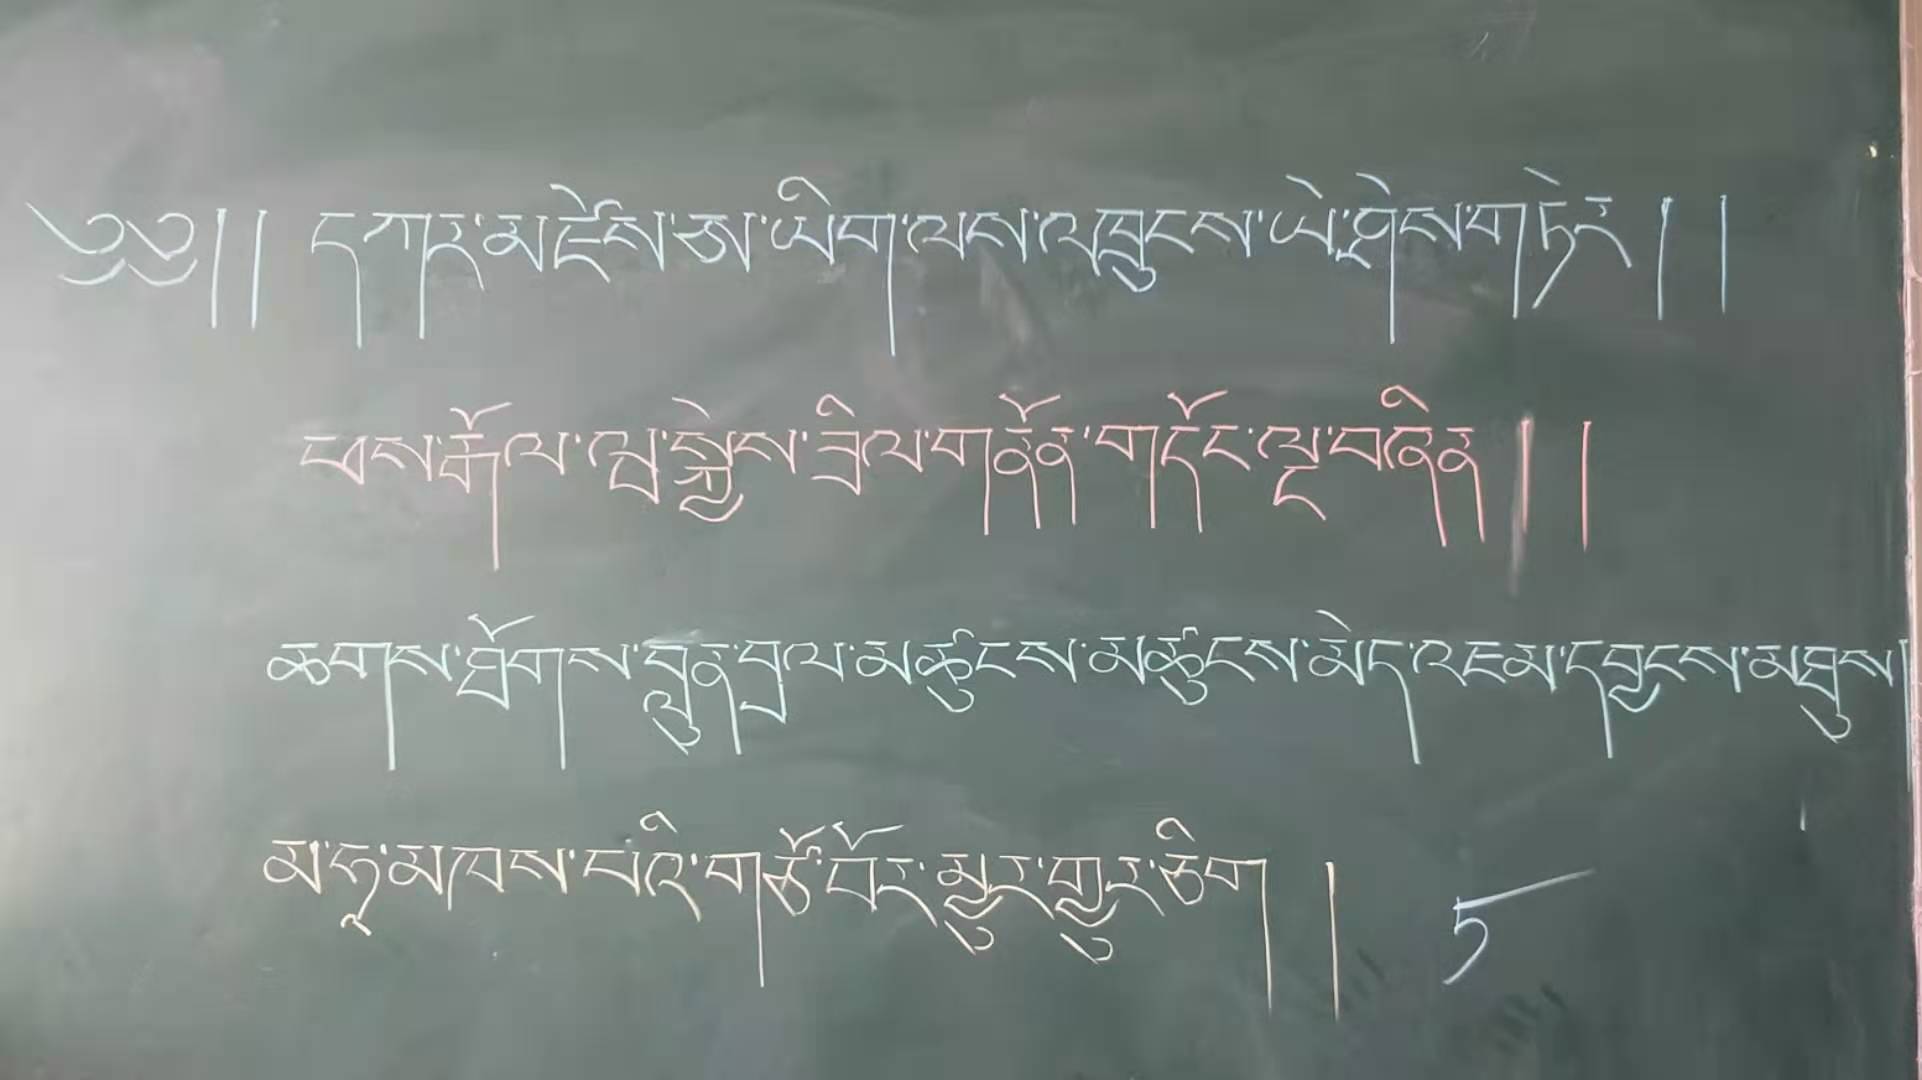 ༄༅།། དཀར་མཛེས་ཨ་ཡིག་ལས་འཁྲུངས་ཡེ་ཤེས་གཏེར།།
ཕས་རྒོལ་ལྟ་སྐྱེས་ཟིལ་གནོན་གདོང་ལྔ་བཞིན།།
ཆགས་ཐོགས་ཀུན་བྲལ་མཚུངས་མཚུངས་མེད་འཇམ་དབྱངས་མཐུས།
མ་ཧཱ་མཁས་པའི་གཙོ་བོར་མྱུར་གྱུར་ཅིག །